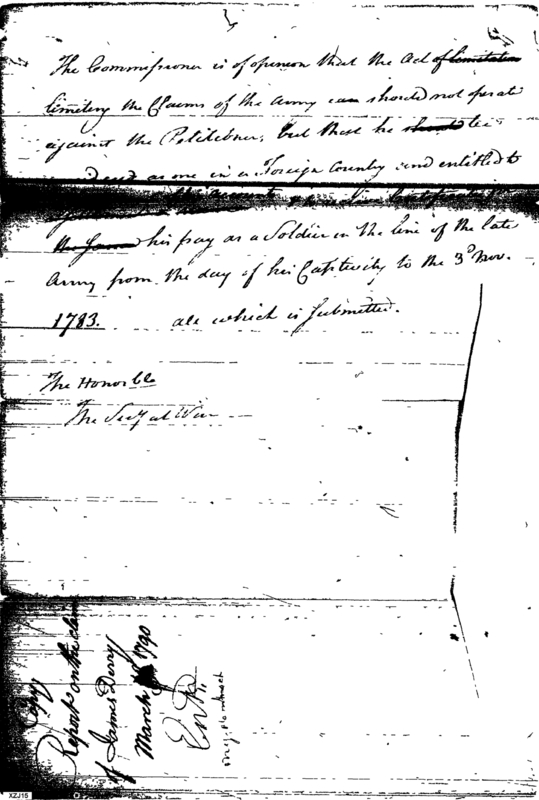 The Commissioner is of opinion that the Act of limitation
limiting the Claims of the Army can should not operate
against the Petitioner; but that he should be
as one in a Foreign Country and entitled to
the same his pay as a Soldier in the line of the late
Army from the day of his Captivity to the 3d Nov.
1783. all which is submitted.
The Honorble
The Secy at War
Copy
Report on the claim
of James Derry
March 1790
Entd.
XZJ15